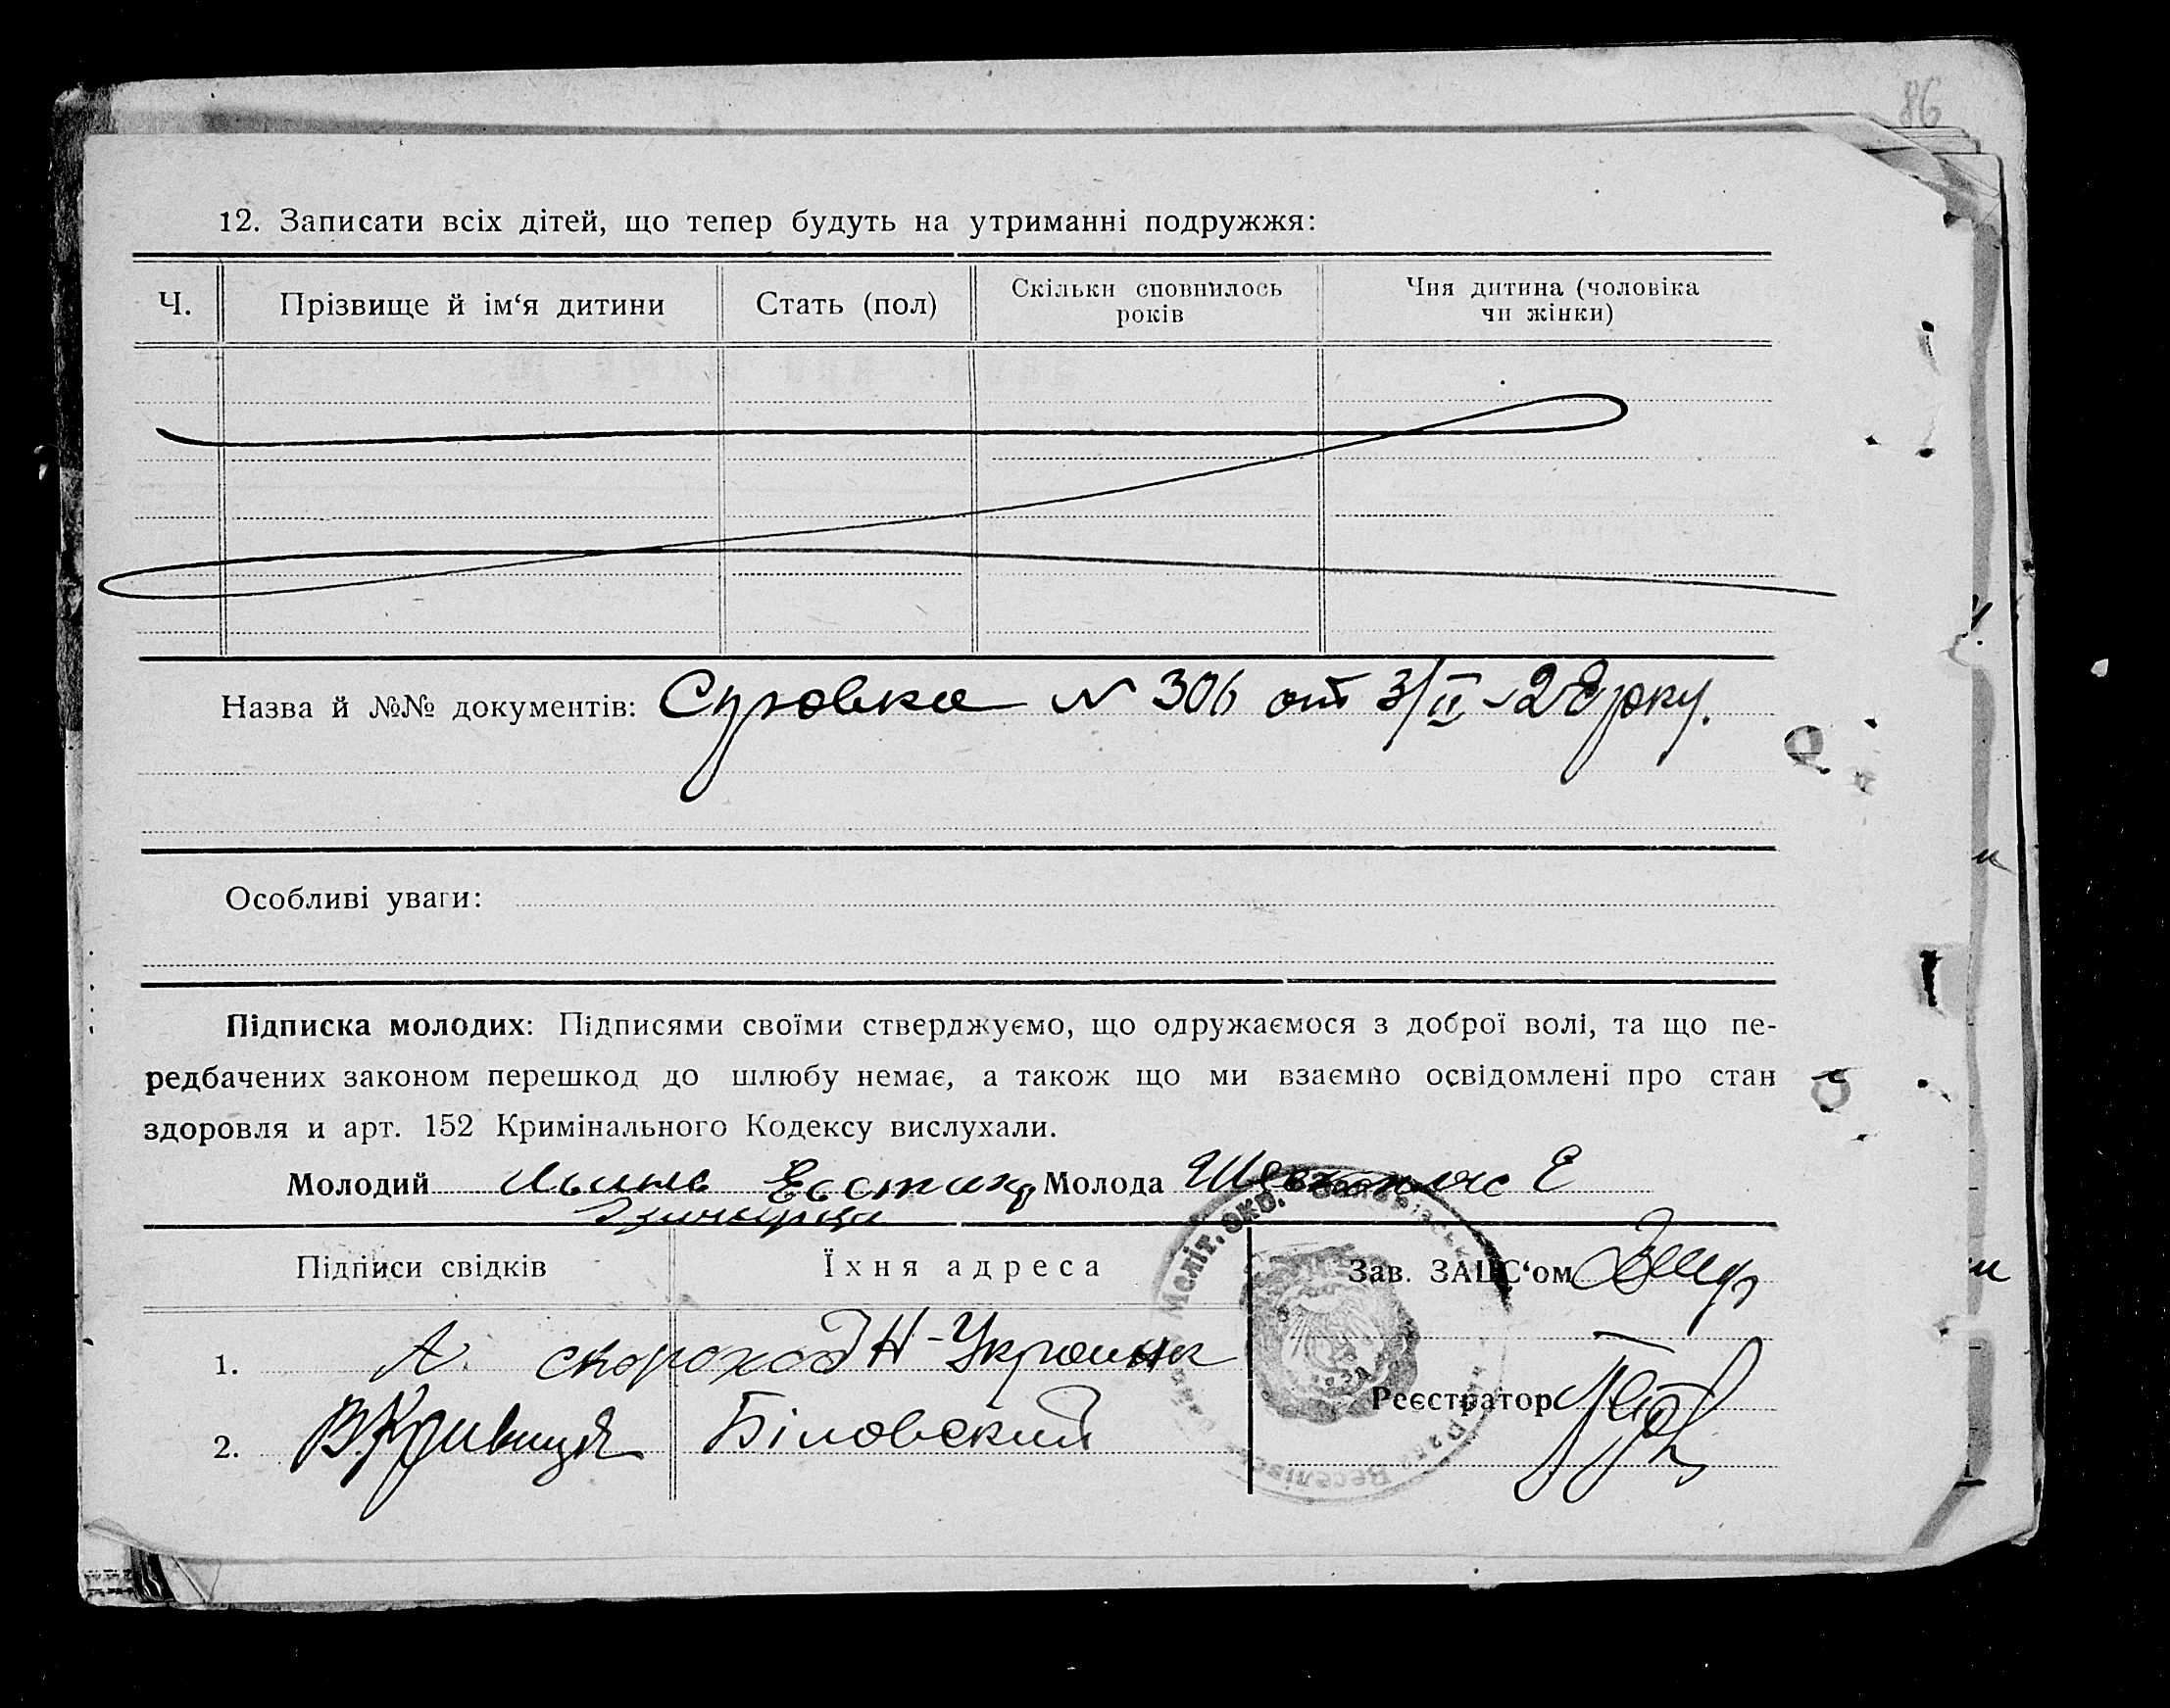 86
12. Записати всіх дітей, що тепер будуть на утриманні подружжя:
Ч. Прізвище й ім‘я дитини Стать (пол) Скільки сповнилось років Чия дитина (чоловіка чи жінки)
Назва й №№ документів: Справка N 306 от 3/II 28 року.
Особливі уваги:
Підписка молодих: Підписями своїми стверджуємо, що одружаємося з доброї волі, та що пе-
редбачених законом перешкод до шлюбу немає, а також що ми взаємно освідомлені про стан
здоровля и арт. 152 Кримінального Кодексу вислухали.
Молодий Молода Е
Підписи свідків Їхня адреса Зав. ЗАЦС‘ом
1. А. скороход Н-Украинка
Реєстратор
2. В. Біловский
Меліт. окр.